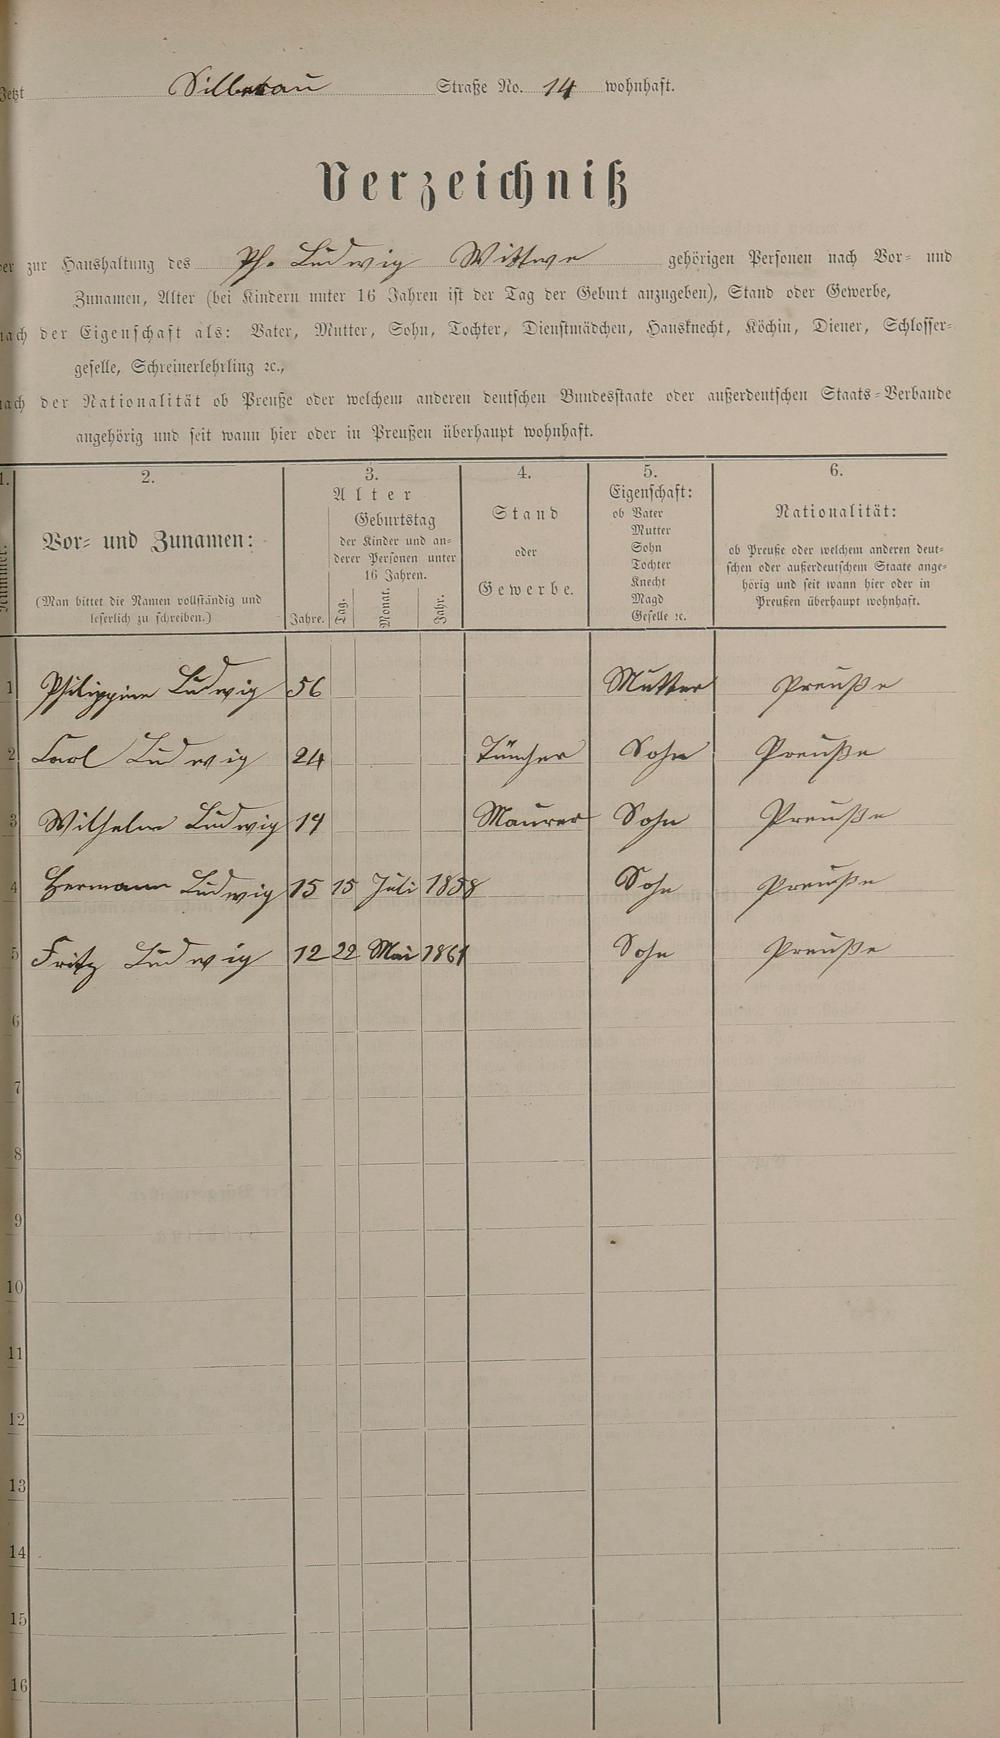 Jetzt Silberau Straße No. 14 wohnhaft.
Verzeichniß
der zur Haushaltung des Ph. Ludwig Wittwe gehörigen Personen nach Vor- und
Zunamen, Alter (bei Kindern unter 16 Jahren ist der Tag der Geburt anzugeben), Stand oder Gewerbe,
nach der Eigenschaft als: Vater, Mutter, Sohn, Tochter, Dienstmädchen, Hausknecht, Köchin, Diener, Schlosser-
geselle, Schreinerlehrling ꝛc.,
nach der Nationalität ob Preuße oder welchem anderen deutschen Bundesstaate oder außerdeutschen Staats-Verbande
angehörig und seit wann hier oder in Preußen überhaupt wohnhaft.
1. 2. 3. 4. 5. 6.
Nummer.
Vor- und Zunamen:
(Man bittet die Namen vollständig und
leserlich zu schreiben.)
Alter
Jahre.
Geburtstag
der Kinder und an-
derer Personen unter
16 Jahren.
Tag. Monat. Jahr.
Stand
oder
Gewerbe.
Eigenschaft:
ob Vater
Mutter
Sohn
Tochter
Knecht
Magd
Geselle ꝛc.
Nationalität:
ob Preuße oder welchem anderen deut-
schen oder außerdeutschem Staate ange-
hörig und seit wann hier oder in
Preußen überhaupt wohnhaft.
1 Philippine Ludwig 56 Mutter Preuße
2 Carl Ludwig 24 Tüncher Sohn Preuße
3 Wilhelm Ludwig 19 Maurer Sohn Preuße
4 Hermann Ludwig 15 15 Juli 1858 Sohn Preuße
5 Fritz Ludwig 12 22 Mai 1861 Sohn Preuße
6
7
8
9
10
11
12
13
14
15
16